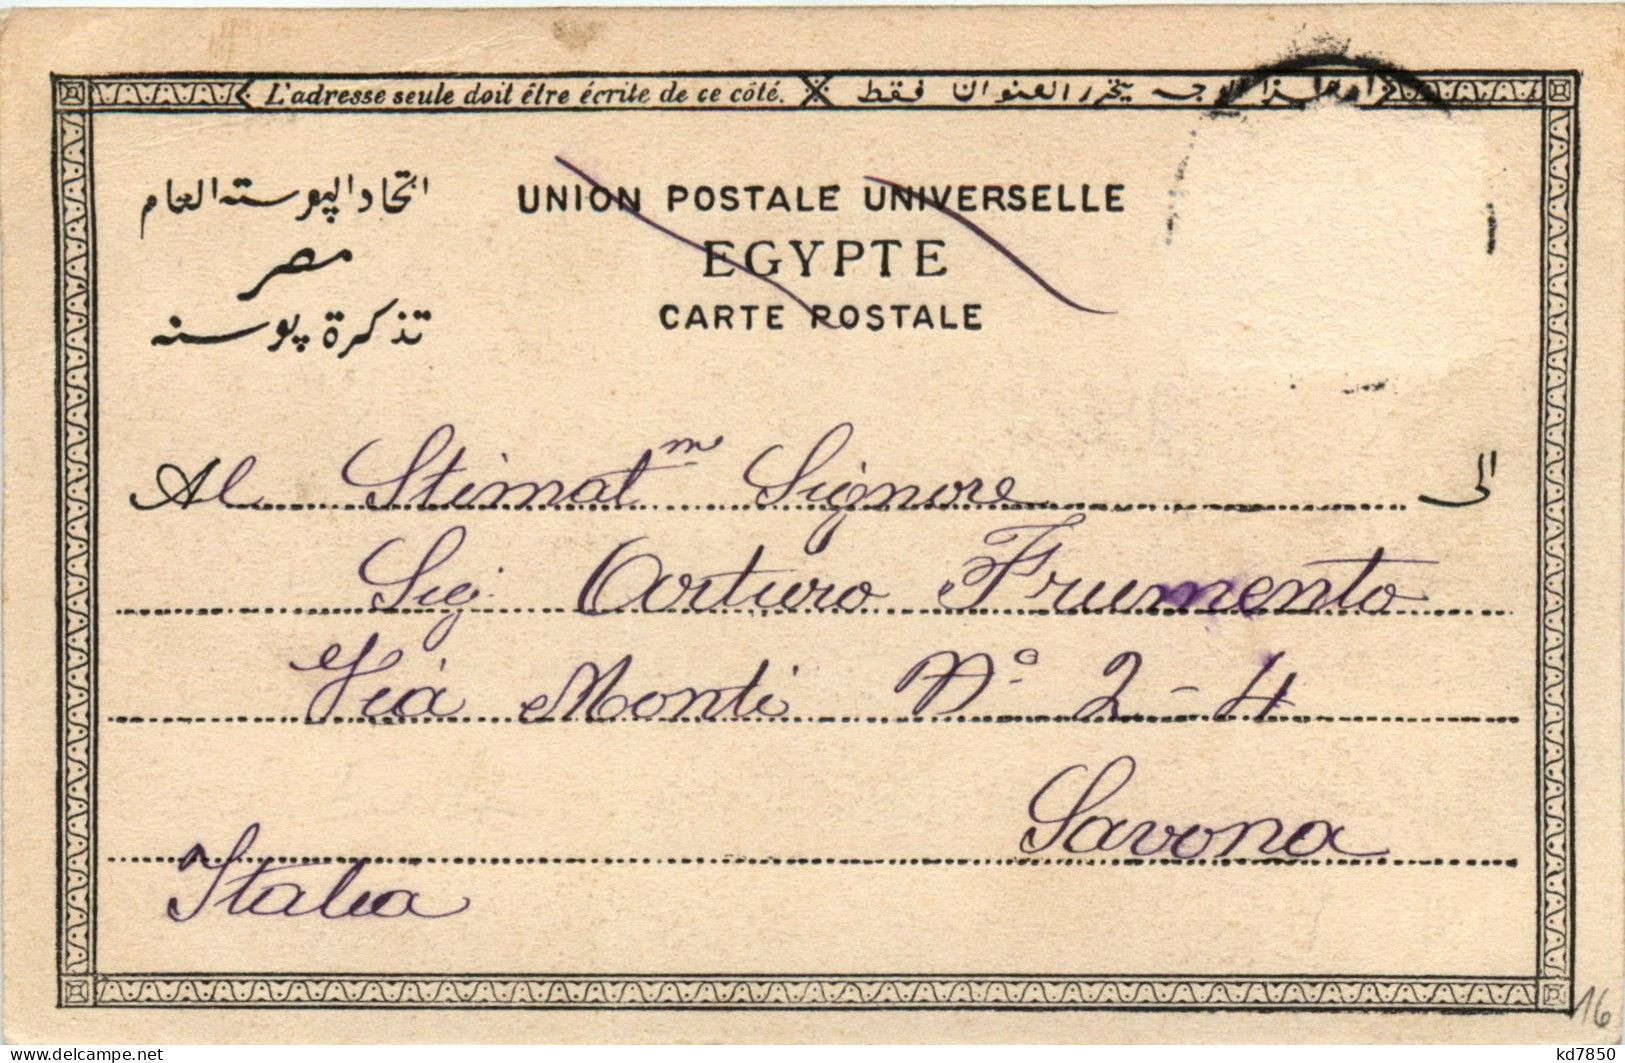 L'adresse seule doit être écrite de ce côté. يحرر العنوان فقط
اتحاد اليوسته العام
مصر
تذكرة پوسته
UNION POSTALE UNIVERSELLE
EGYPTE
CARTE POSTALE
Al Stimat.m Signore الى
Sig. Arturo Frumento
Via Monti N.o 2-4
Savona
Italia
16
kd7850